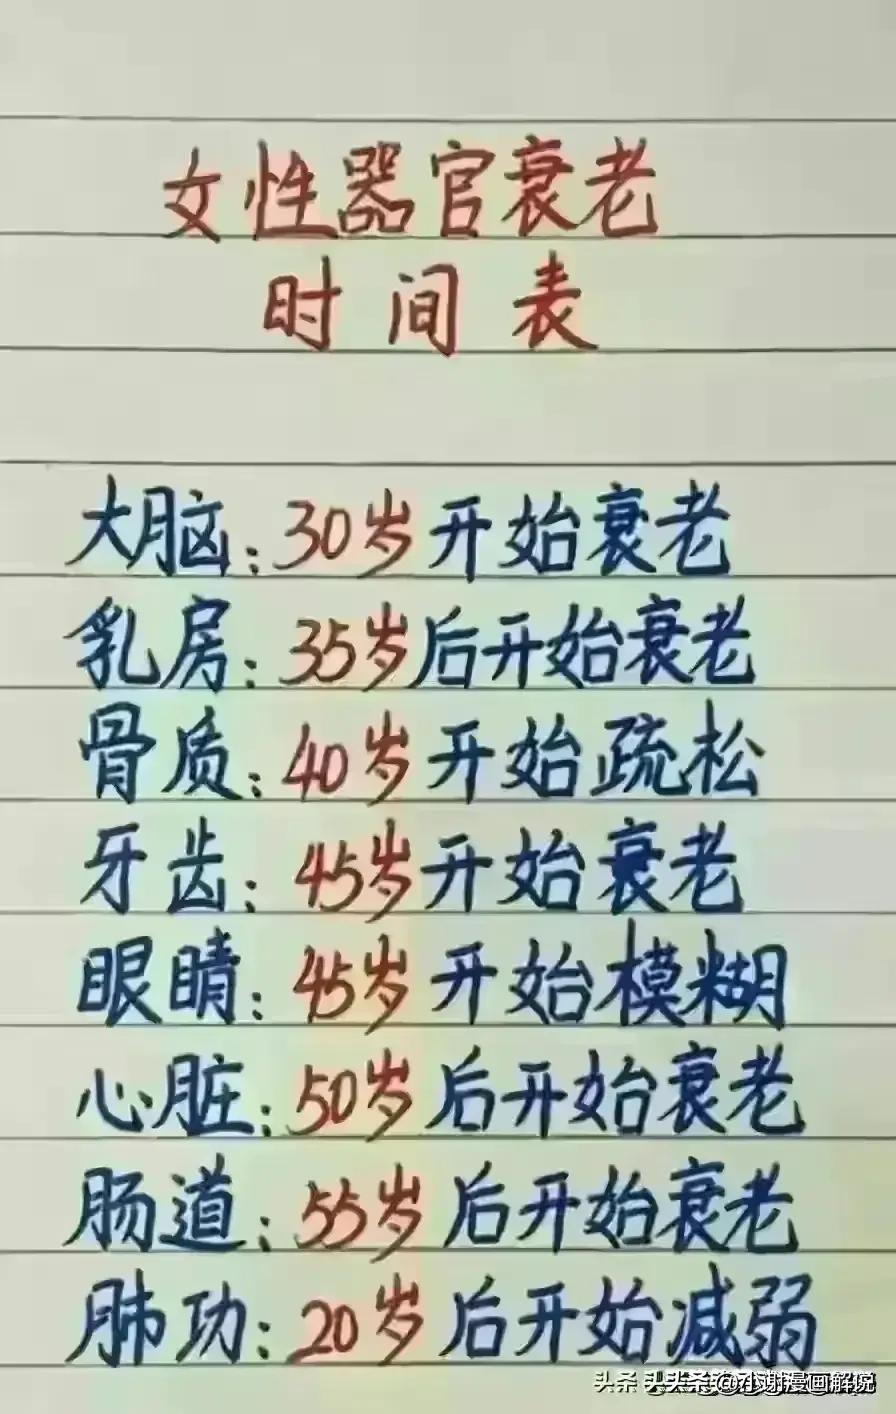 女性器官衰老
时间表
大脑：30岁开始衰老
乳房：35岁后开始衰老
骨质：40岁开始疏松
牙齿：45岁开始衰老
眼睛：45岁开始模糊
心脏：50岁后开始衰老
肠道：55岁后开始衰老
肺功：20岁后开始减弱
头条